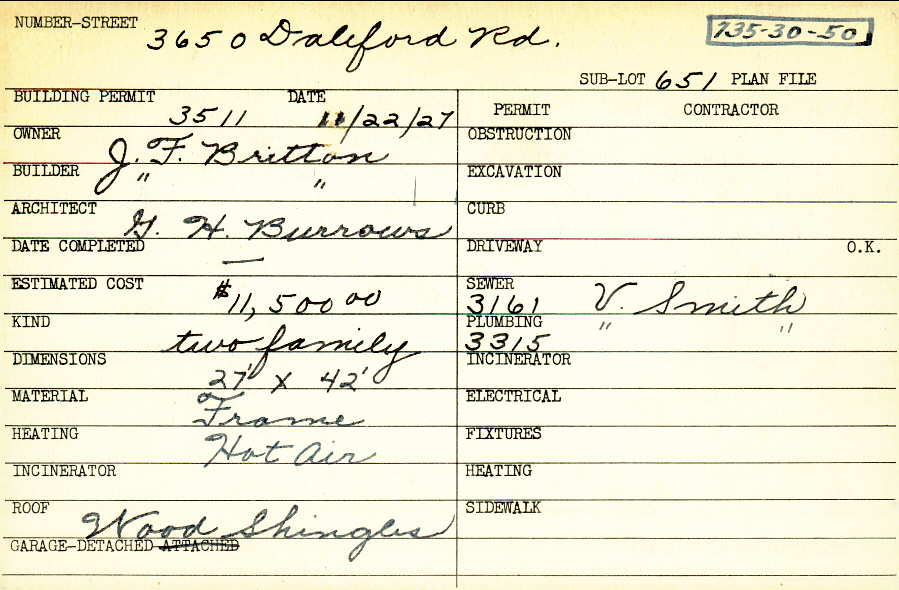 NUMBER-STREET 3650 Daleford Rd. 735-30-50
SUB-LOT 651 PLAN FILE
BUILDING PERMIT 3511 DATE 11/22/27
PERMIT CONTRACTOR
OWNER J. F. Britton
OBSTRUCTION
BUILDER " "
EXCAVATION
ARCHITECT G. H. Burrows
CURB
DATE COMPLETED —
DRIVEWAY O.K.
ESTIMATED COST $11,500 00
SEWER 3161 V. Smith
KIND two family
PLUMBING 3315 " "
DIMENSIONS 27' x 42'
INCINERATOR
MATERIAL Frame
ELECTRICAL
HEATING Hot Air
FIXTURES
INCINERATOR
HEATING
ROOF Wood Shingles
SIDEWALK
GARAGE-DETACHED ATTACHED